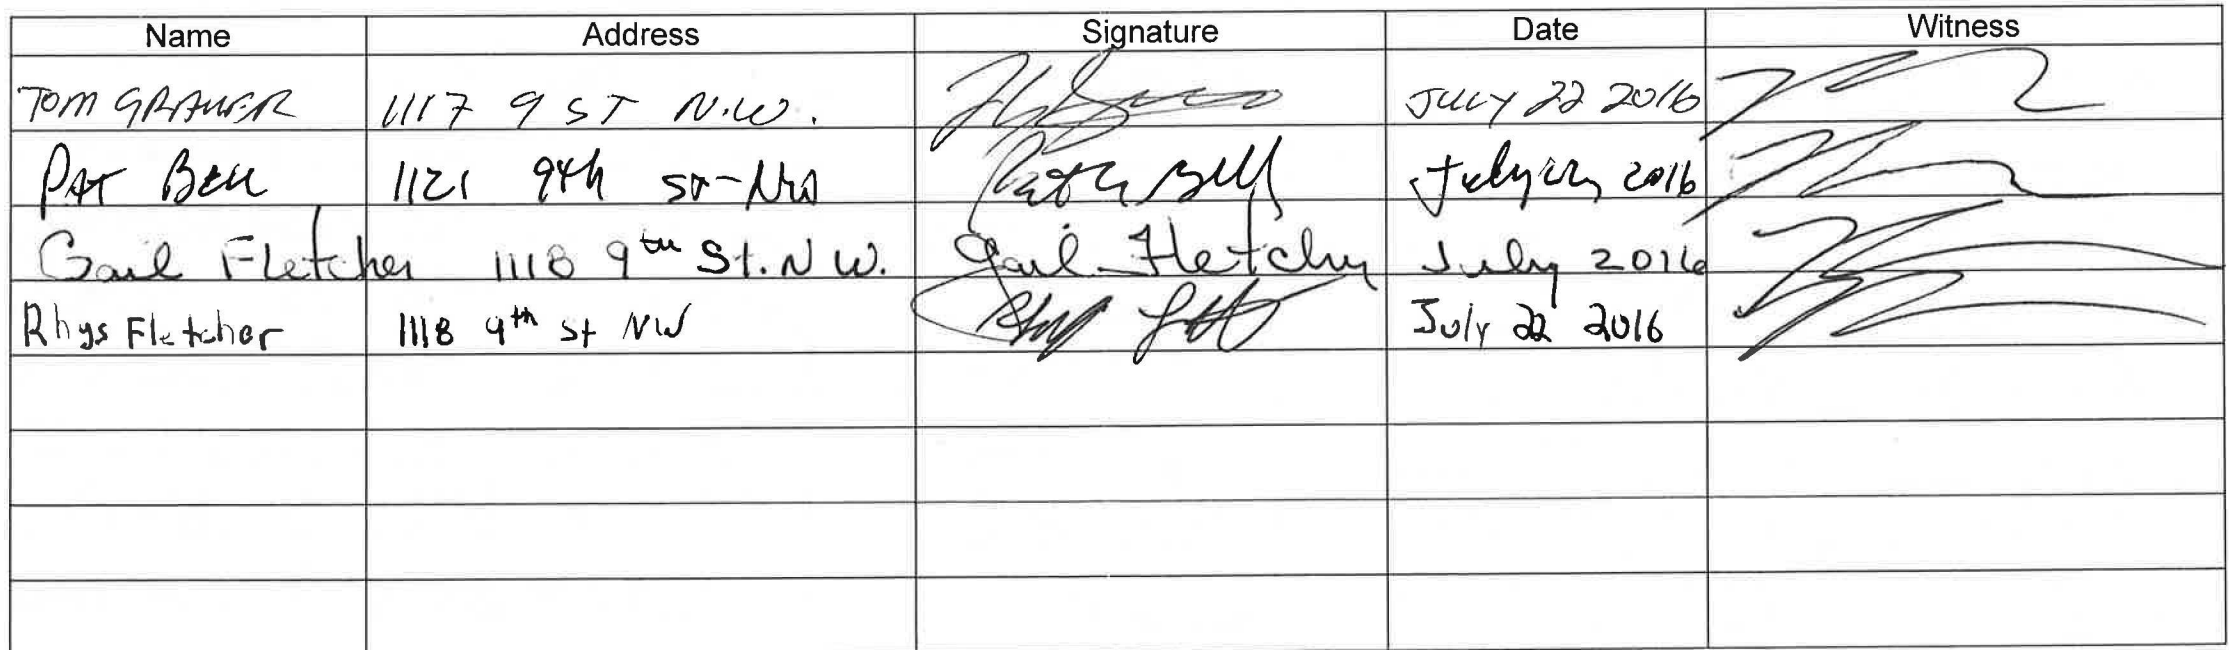 Name Address Signature Date Witness
TOM GRAUER 1117 9 ST N.W. JULY 22 2016
PAT BELL 1121 9th ST-NW Pat Bell July 2016
Gail Fletcher 1118 9th St. N W. Gail Fletcher July 2016
Rhys Fletcher 1118 9th St NW July 22 2016